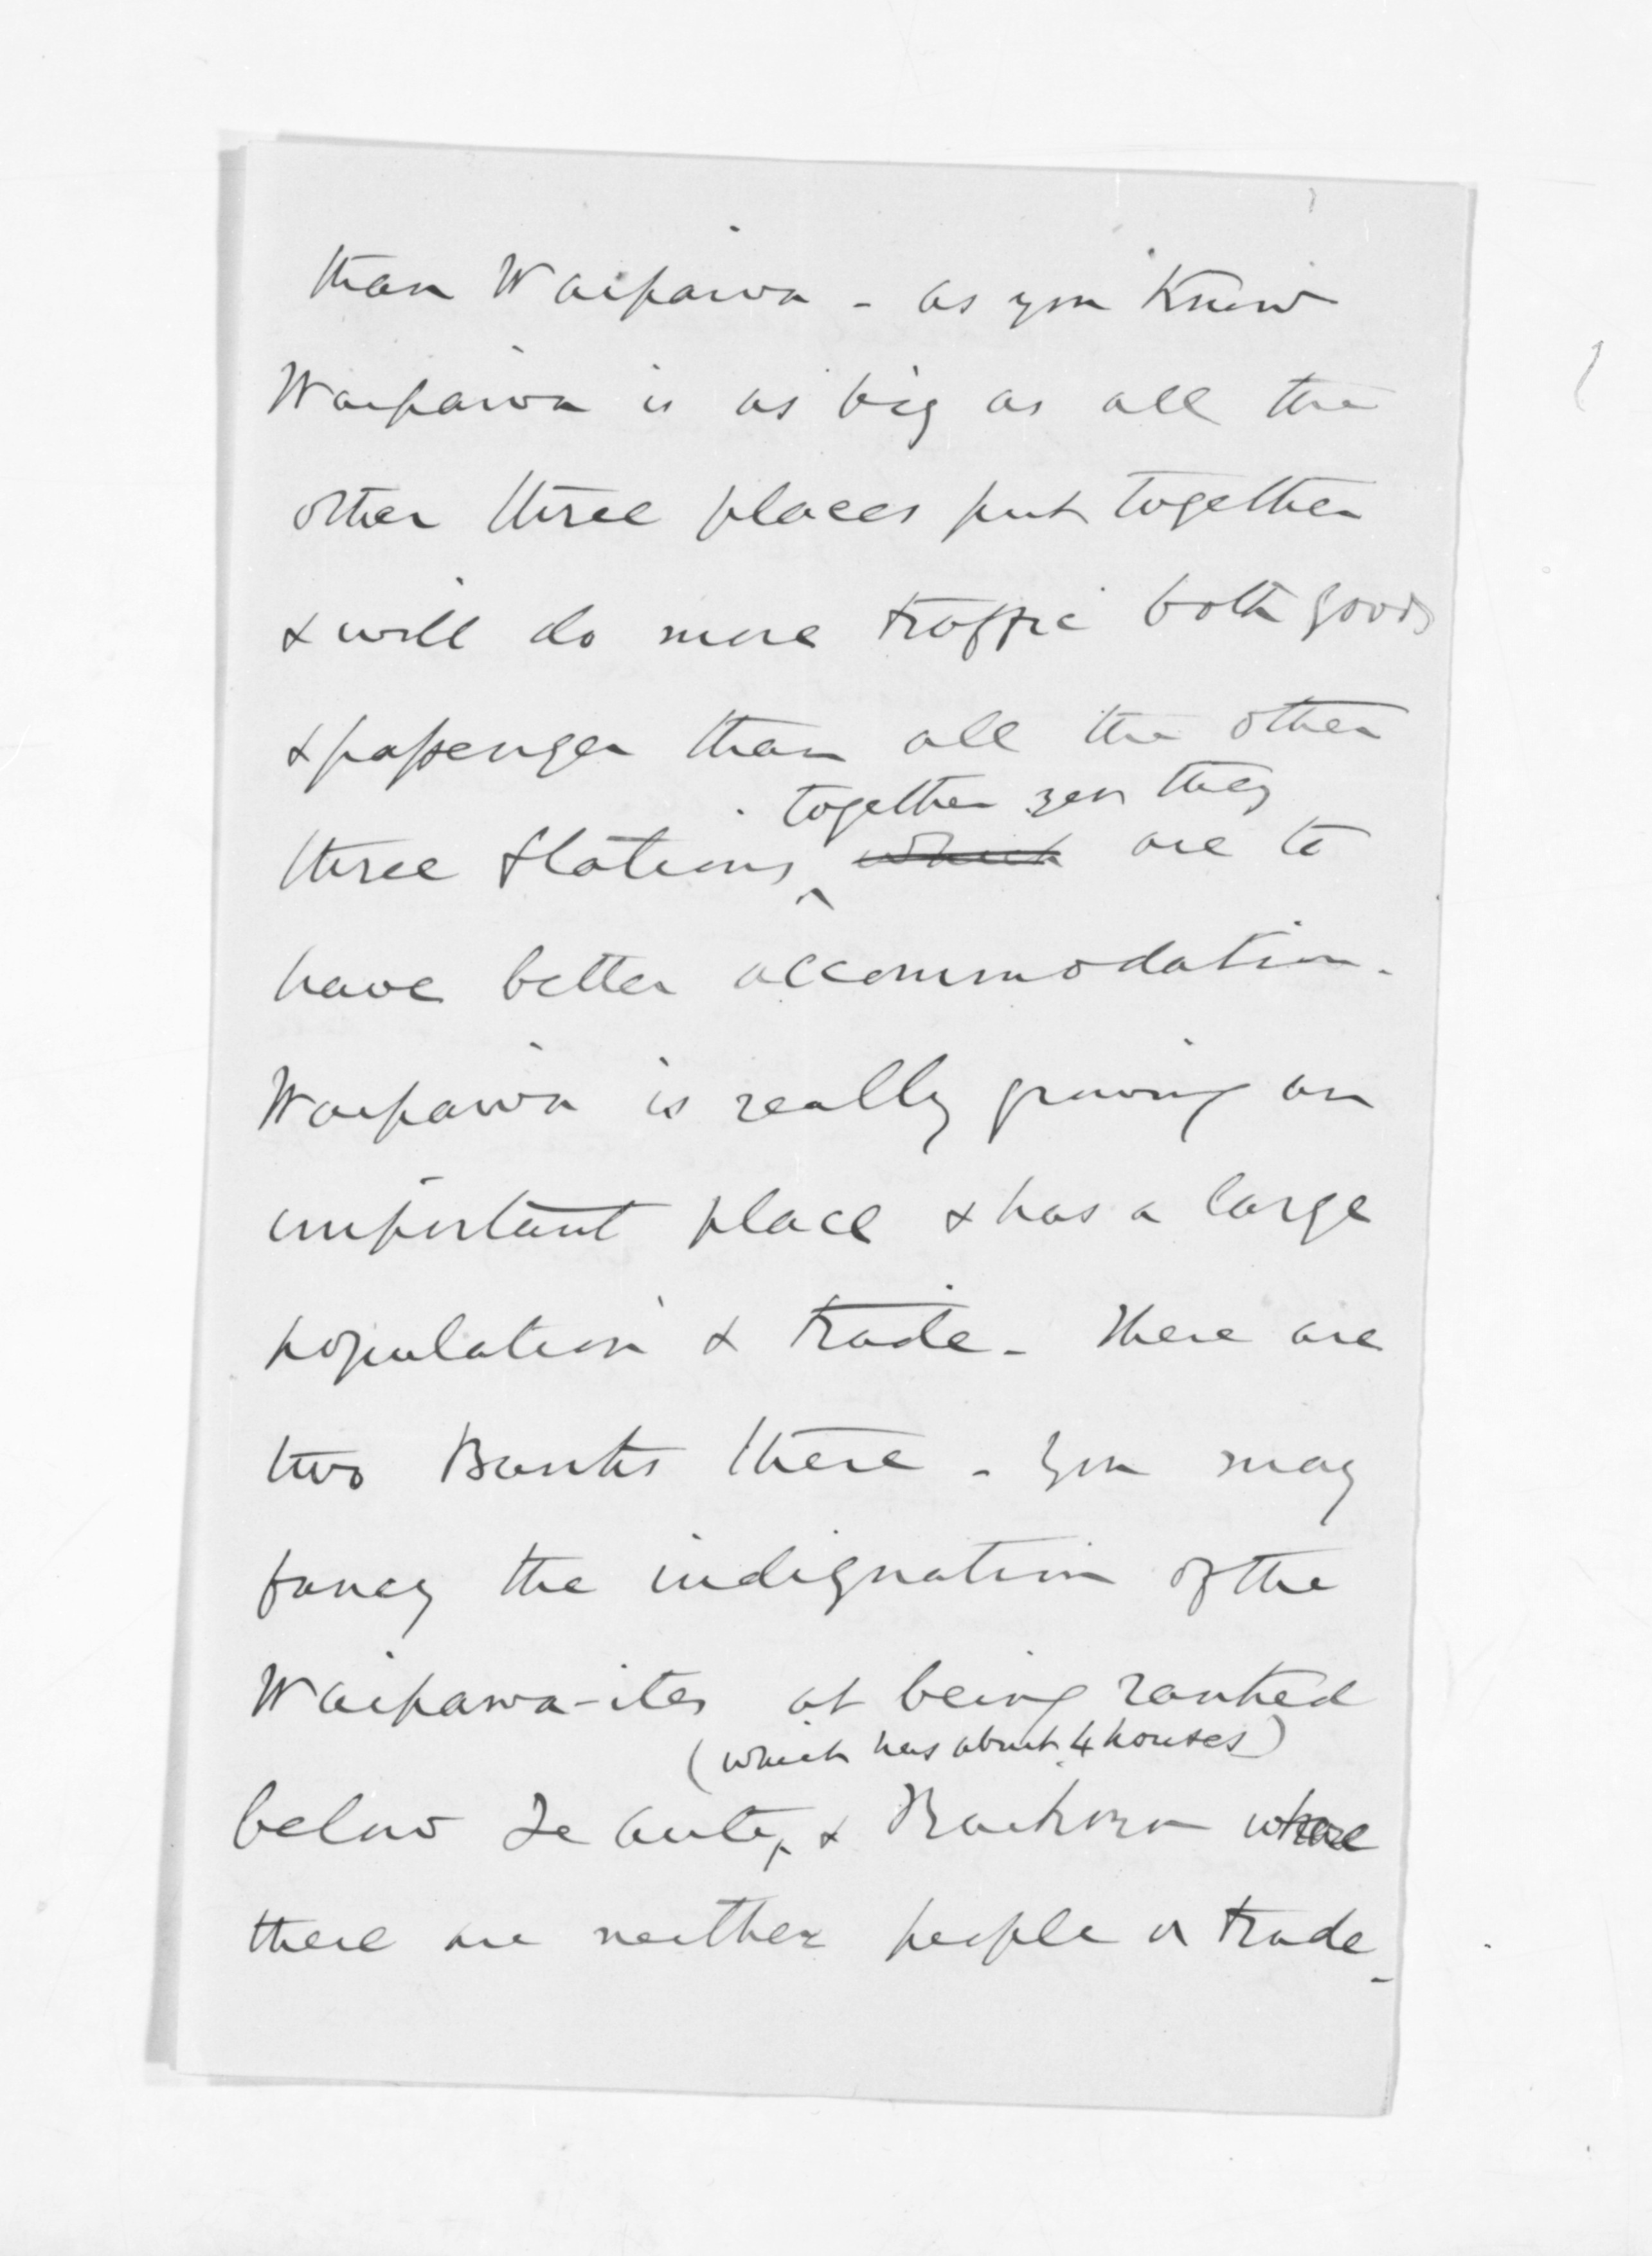 than Waipawa - as you know
Waipawa is as big as all the
other three places put together
& will do more traffic both goods
& passenger than all the other
together yet they
three stations which are to
have better accommodation.
Waipawa is really growing an
important place & has a large
population & trade - There are
two Banks there - You may
fancy the indignation of the
Waipawa-ites at being ranked
(which has about 4 houses)
below Te Aute, & Kaikora where
there are neither people or trade -